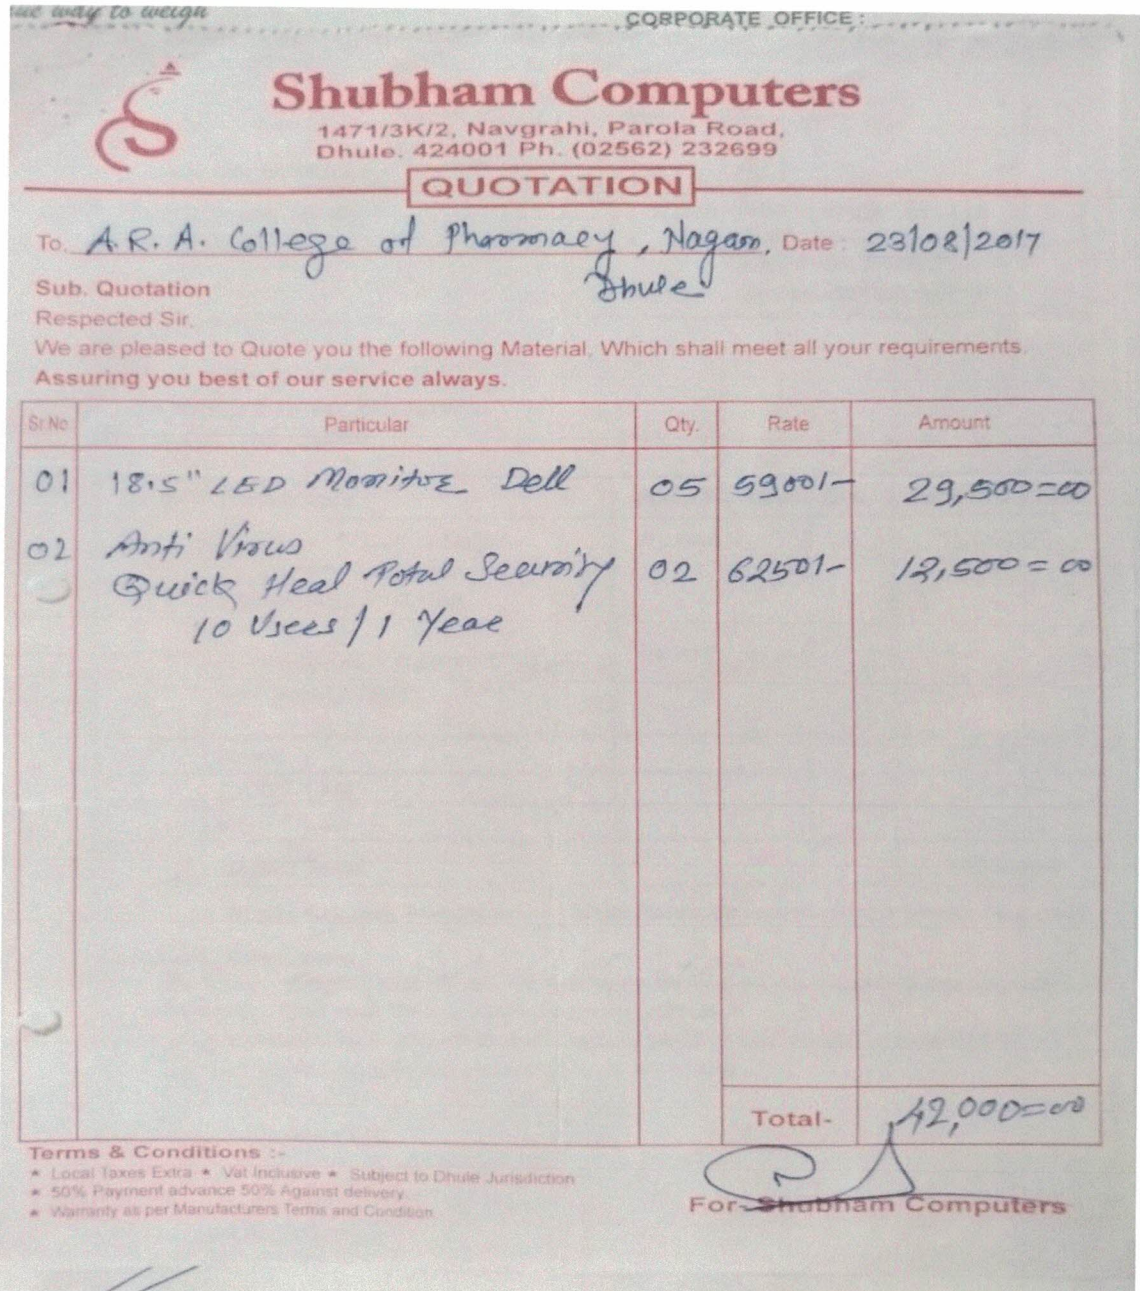 way to weigh
CORPORATE OFFICE :
Shubham Computers
1471/3K/2, Navgrahi, Parola Road,
Dhule. 424001 Ph. (02562) 232699
QUOTATION
To, A.R.A. College of Pharmacy, Nagaon, Date : 23/08/2017
Dhule
Sub. Quotation
Respected Sir,
We are pleased to Quote you the following Material, Which shall meet all your requirements.
Assuring you best of our service always.
Sr.No Particular Qty. Rate Amount
01 18.5" LED Monitor Dell 05 5900/- 29,500=00
02 Anti Virus
Quick Heal Total Security 02 6250/- 12,500=00
10 Users / 1 Year
Total- 42,000=00
Terms & Conditions :-
★ Local Taxes Extra ★ Vat Inclusive ★ Subject to Dhule Jurisdiction
★ 50% Payment advance 50% Against delivery.
★ Warranty as per Manufacturers Terms and Condition
For- Shubham Computers